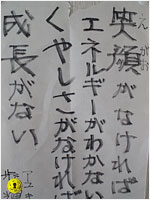 笑顔がなければ
えがお
エネルギーがわかない
くやしさがなければ
成長がない